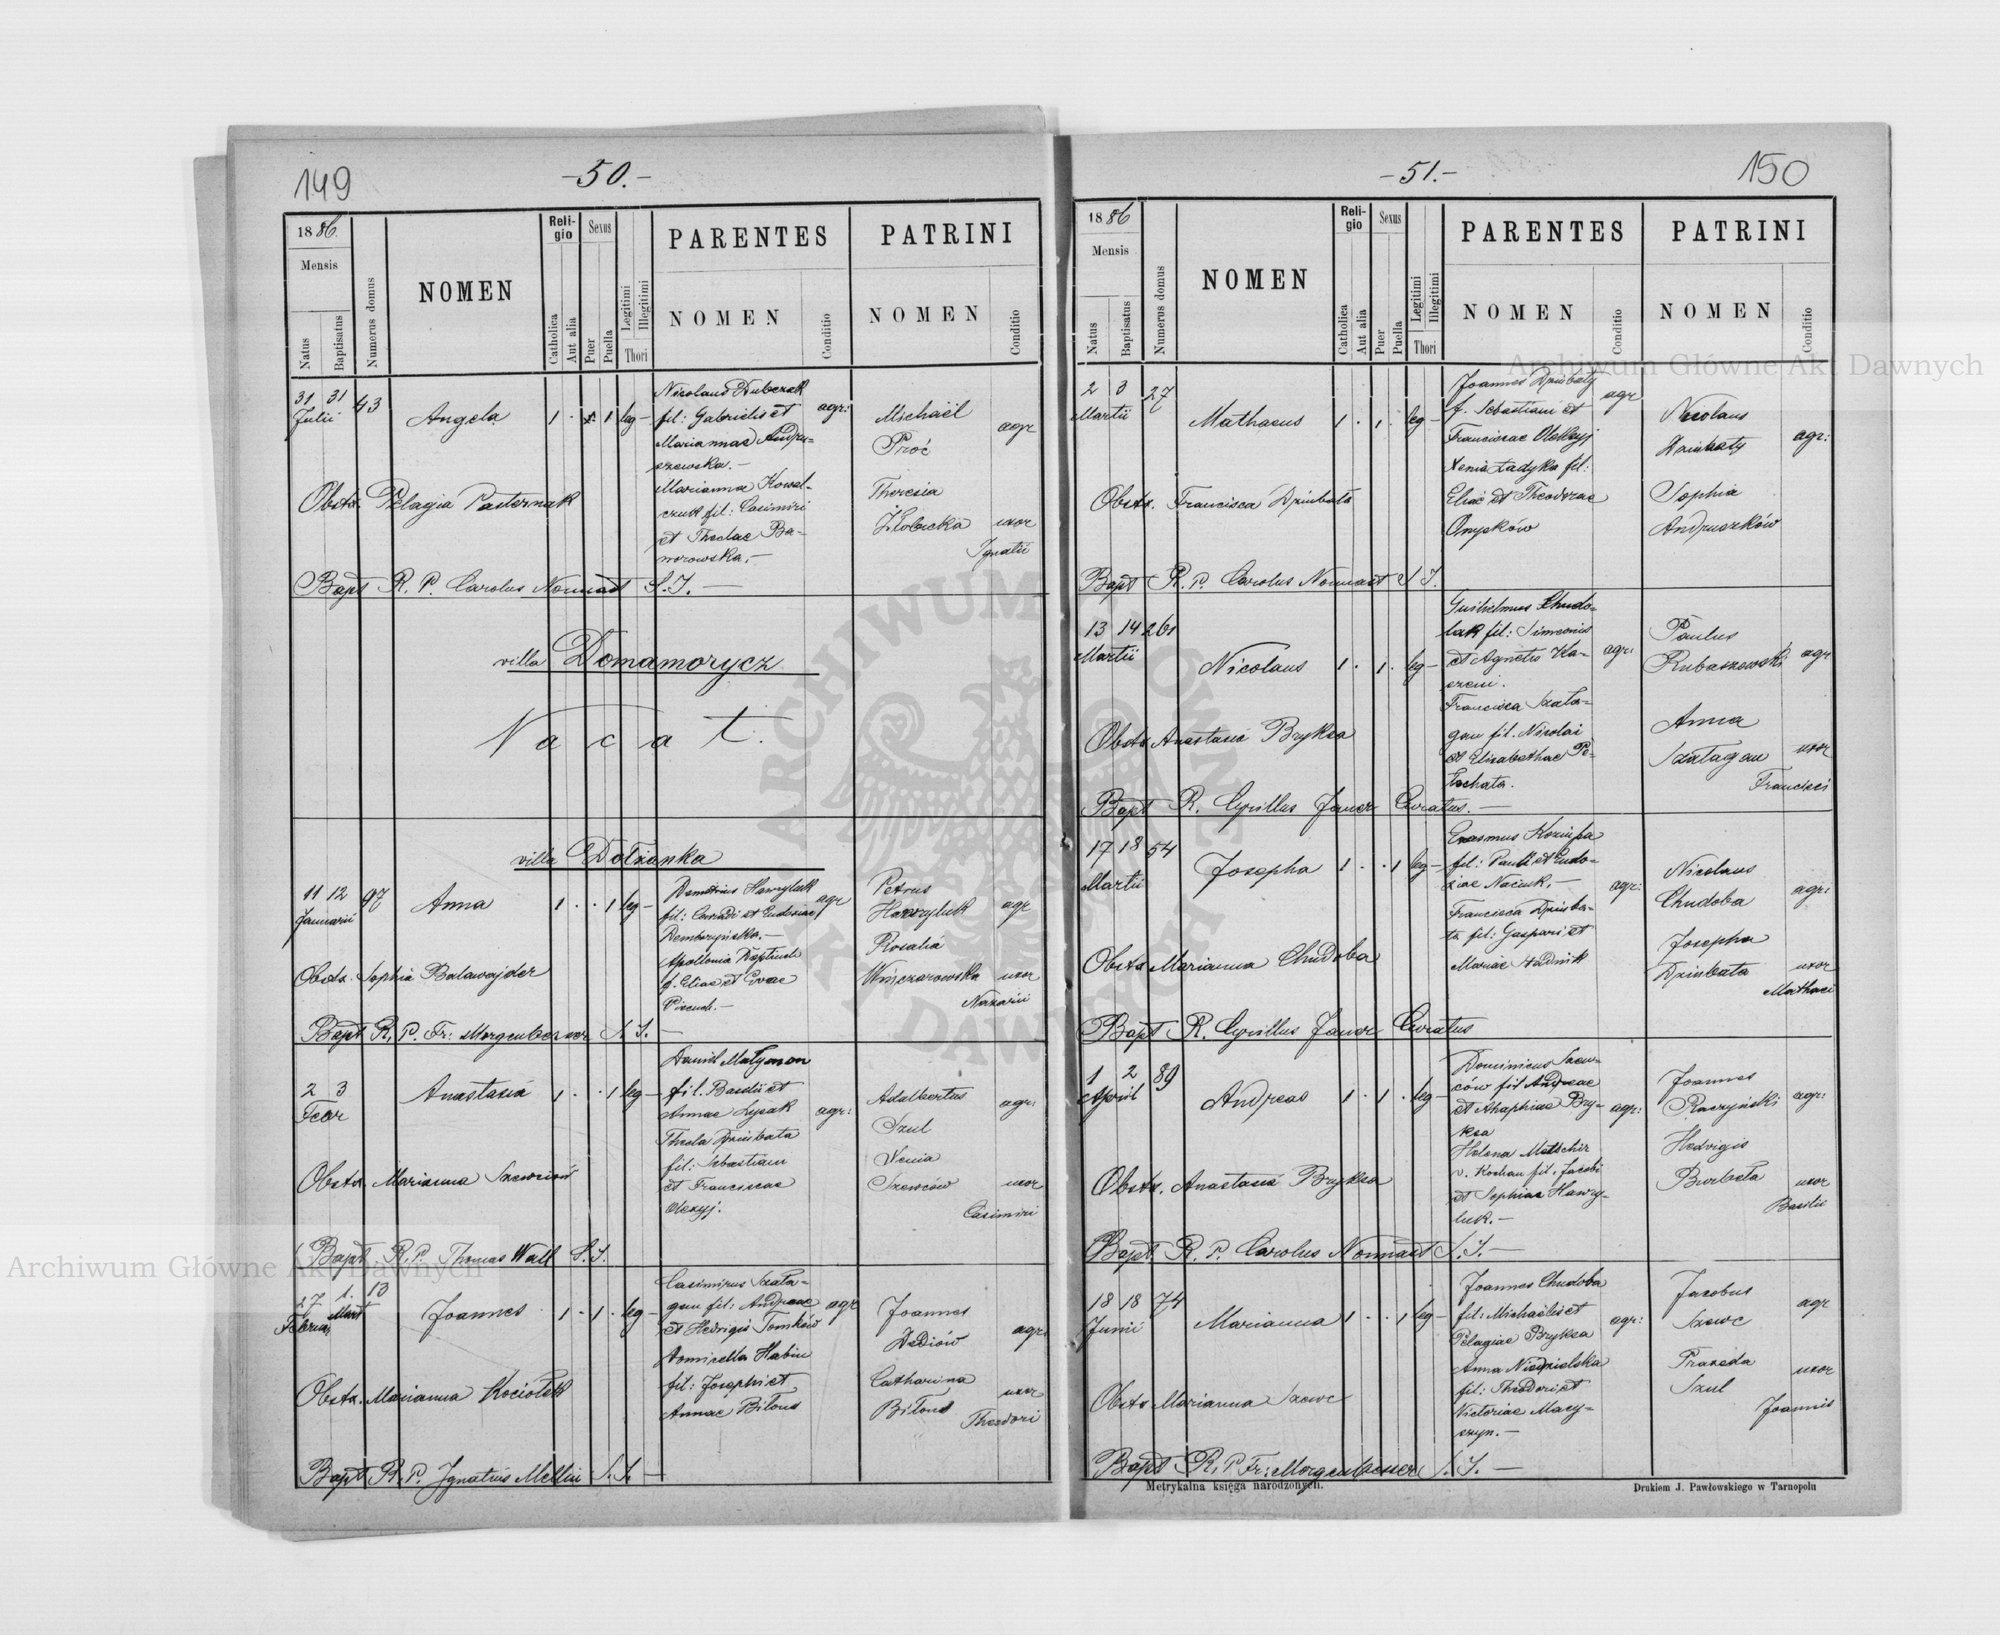 149
-50.-
1886.
Mensis
Natus
Baptisatus
Numerus domus
NOMEN
Religio
Catholica
Aut alia
Sexus
Puer
Puella
Legitimi
Illegitimi
Thori
PARENTES
NOMEN
Conditio
PATRINI
NOMEN
Conditio
31 31 43
Julii
Angela
1 . . 1 leg -
Nicolaus Hubczak
fil: Gabrielis et
Mariannae Andru-
szewska. -
Marianna Kowal-
czuk fil: Casimiri
et Theclae Ba-
worowska. -
agr:
Michaël
Proć
agr
Theresia
Złobicka uxor
Ignatii
Obstx. Pelagia Pasternak
Bapt R. P. Carolus Nonnast S. J. -
villa Domamorycz
Vacat.
villa Dołżanka
11 12 97
Januarii
Anna
1 . . 1 leg -
Demetrius Hawryluk
fil: Conradi et Eudoxiae
Dembrzyńska. -
Apollonia Daptiuch
f. Eliae et Evae
Piecuch. -
agr
Petrus
Hawryluk agr
Rosalia
Winczarowska uxor
Nazarii
Obstx. Sophia Balawajder
Bapt R. P. Fr: Morgenbesser S. J. -
2 3
Febr
Anastasia
1 . . 1 leg -
Daniel Małymon
fil. Basilii et
Annae Łysak
Thecla Dziubata
fil: Sebastiani
et Franciscae
Olexyj.
agr:
Adalbertus
Szul
agr:
Xenia
Szewców uxor
Casimiri
Obstx. Marianna Szewciów
Bapt. R. P. Thomas Wall S. J.
27 1. 13
Februar Mart
Joannes
1 . 1 . leg -
Casimirus Szała-
gan fil: Andreae
et Hedvigis Tomków
Domicella Habin
fil: Josephi et
Annae Biłous
agr
Joannes
Dediów
agr:
Catharina
Biłous uxor
Theodori
Obstx. Marianna Kociołek
Bapt. R. P. Ignatius Mellin S. J. -
150
-51.-
1886
Mensis
Natus
Baptisatus
Numerus domus
NOMEN
Religio
Catholica
Aut alia
Sexus
Puer
Puella
Legitimi
Illegitimi
Thori
PARENTES
NOMEN
Conditio
PATRINI
NOMEN
Conditio
2 3 27
Martii
Mathaeus
1 . 1 . leg -
Joannes Dziubaty
f. Sebastiani et
Franciscae Oleksyj
Xenia Ładyka fil:
Eliae et Theodorae
Onysków
agr
Nicolaus
Dziubaty agr:
Sophia
Andruszków
Obstx. Francisca Dziubata
Bapt R. P. Carolus Nonnast S J.
13 14 261
Martii
Nicolaus
1 . 1 . leg -
Guilielmus Chudo-
lak fil: Simeonis
et Agnetis Ka-
szeni.
Francisca Szała-
gan fil. Nicolai
et Elisabethae Pe-
łechata.
agr:
Paulus
Rubaszewski agr
Anna
Szałagan uxor
Francisci
Obstx Anastasia Bryksa
Bapt R. Cyrillus Janer Curatus. -
17 18 54
Martii
Josepha
1 . . 1 leg -
Erasmus Koziupa
fil: Pauli et Eudo-
xiae Naciuk. -
Francisca Dziuba-
ta fil: Gaspari et
Mariae Hudnik
agr:
Nicolaus
Chudoba agr:
Josepha
Dziubata uxor
Mathaei
Obstx Marianna Chudoba
Bapt R. Cyrillus Janer Curatus
1 2 89
April
Andreas
1 . 1 . leg -
Dominicus Szew-
ców fil Andreae
et Ahaphiae Bry-
ksa
Helena Metschir
v. Kochan fil: Jacobi
et Sophiae Hawry-
luk. -
agr:
Joannes
Raczyński agr:
Hedvigis
Burbeła uxor
Basilii
Obstx. Anastasia Bryksa
Bapt. R. P. Carolus Nonnast S. J. -
18 18 74
Junii
Marianna
1 . . 1 leg -
Joannes Chudoba
fil: Michaëlis et
Pelagiae Bryksa
Anna Niedzielska
fil: Theodori et
Victoriae Mary-
szyn. -
agr:
Jacobus
Szewc
agr
Praxeda
Szul
uxor
Joannis
Obstx Marianna Szewc
Bapt R. P Fr: Morgenbesser S. J. -
Metrykalna księga narodzonych.
Drukiem J. Pawłowskiego w Tarnopolu
Archiwum Główne Akt Dawnych
Archiwum Główne Akt Dawnych
ARCHIWUM GŁÓWNE AKT DAWNYCH